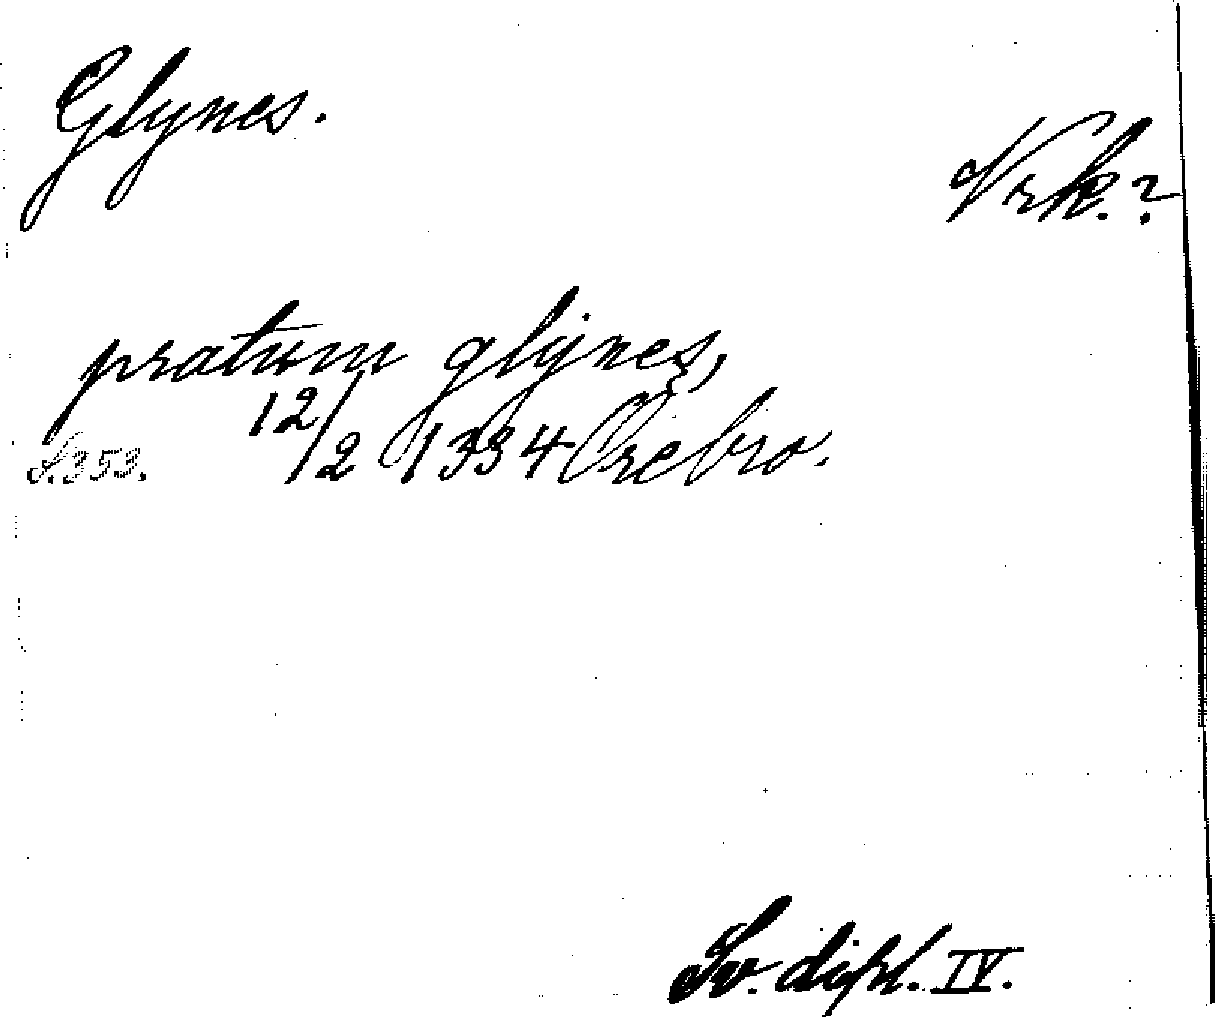 Glynes.
Nrk.?
pratum glynes,
12/2 1334 Örebro.
S. 353.
Sv. dipl. IV.